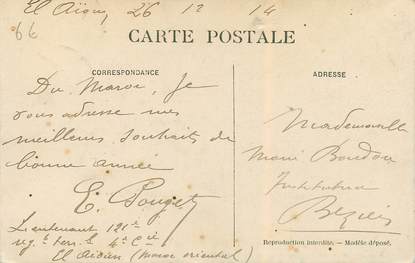 El Aïoun, 26 12 14
66
CARTE POSTALE
CORRESPONDANCE
ADRESSE
Du Maroc, Je
vous adresse mes
meilleurs souhaits de
bonne année
E. Pouget
Lieutenant 121e
rgt terr l 4e Cie
El Aïoun (Maroc oriental)
Mademoiselle
Boudou
Institutrice
Béziers
Reproduction interdite. — Modèle déposé.